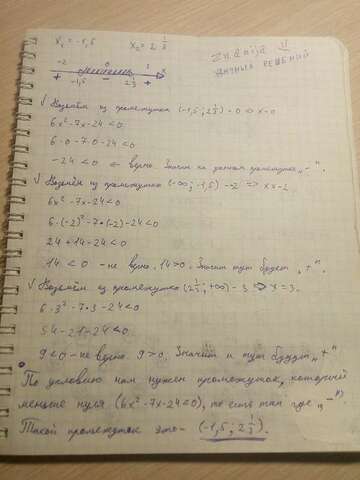 x₁ = -1,5   x₂ = 2 1/3
znanija
ДАННЫХ РЕШЕНИЙ
-2   0   3   x
+   -1,5   -   2 1/3   +
√ Возьмём из промежутка (-1,5; 2 1/3) - 0 => x=0
6x² - 7x - 24 < 0
6·0 - 7·0 - 24 < 0
-24 < 0 ← верно. Значит на данном промежутке „-".
√ Возьмём из промежутка (-∞; -1,5) -2 => x=-2
6x² - 7x - 24 < 0
6·(-2)² - 7·(-2) - 24 < 0
24 + 14 - 24 < 0
14 < 0 - не верно. 14 > 0. Значит тут будет „+".
√ Возьмём из промежутка (2 1/3; +∞) - 3 => x = 3.
6·3² - 7·3 - 24 < 0
54 - 21 - 24 < 0
9 < 0 - не верно 9 > 0. Значит и тут будет „+"
По условию нам нужен промежуток, который
меньше нуля (6x² - 7x - 24 < 0), то есть там где „-".
Такой промежуток это - (-1,5; 2 1/3).